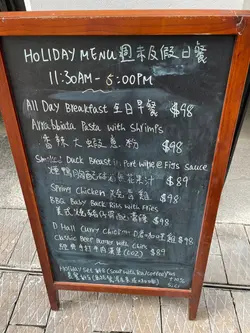 HOLIDAY MENU 週末及假日餐
11:30AM - 5:00PM
All Day Breakfast 全日早餐 $98
Arrabbiata Pasta with Shrimps
香辣大蝦意粉 $98
Smoked Duck Breast in Port wine & Figs Sauce
煙鴨胸配 花果汁 $89
Spring Chicken 燒春雞 $98
BBQ Baby Back Ribs with Fries
$98
D Hall Curry Chicken $98
Classic Beef Burger with Chips
(8oz) $89
Holiday Set $48 (Soup with Tea/Coffee/